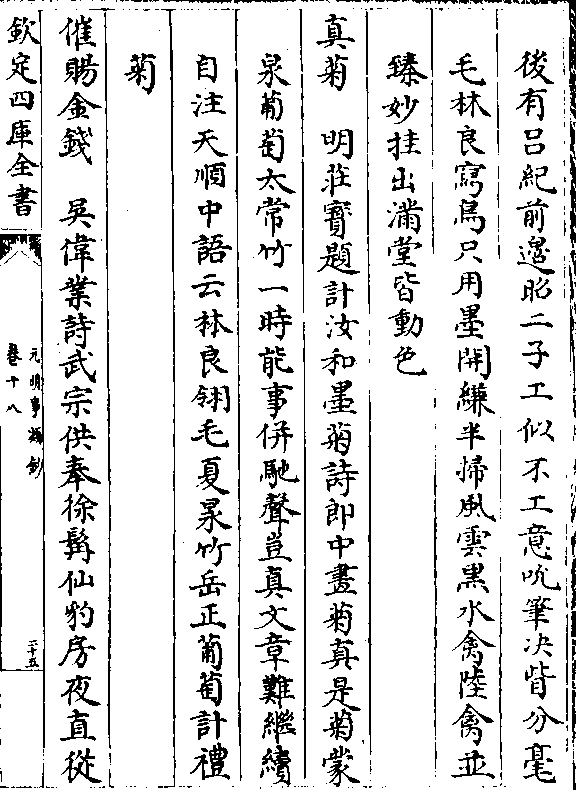 後有呂紀前邊昭二子工似不工意吮筆決眥分毫
毛林良寫鳥只用墨開縑半掃風雲黑水禽陸禽並
臻妙挂出滿堂皆動色
真菊　明莊㫤題計汝和墨菊詩郎中畫菊真是菊蒙
泉葡萄太常竹一時能事併馳聲豈真文章難繼續
自注天順中語云林良翎毛夏㫤竹岳正葡萄計禮
菊
催賜金錢　吳偉業詩武宗供奉徐髯仙豹房夜直從
欽定四庫全書
元明事類鈔
卷十八
二十五